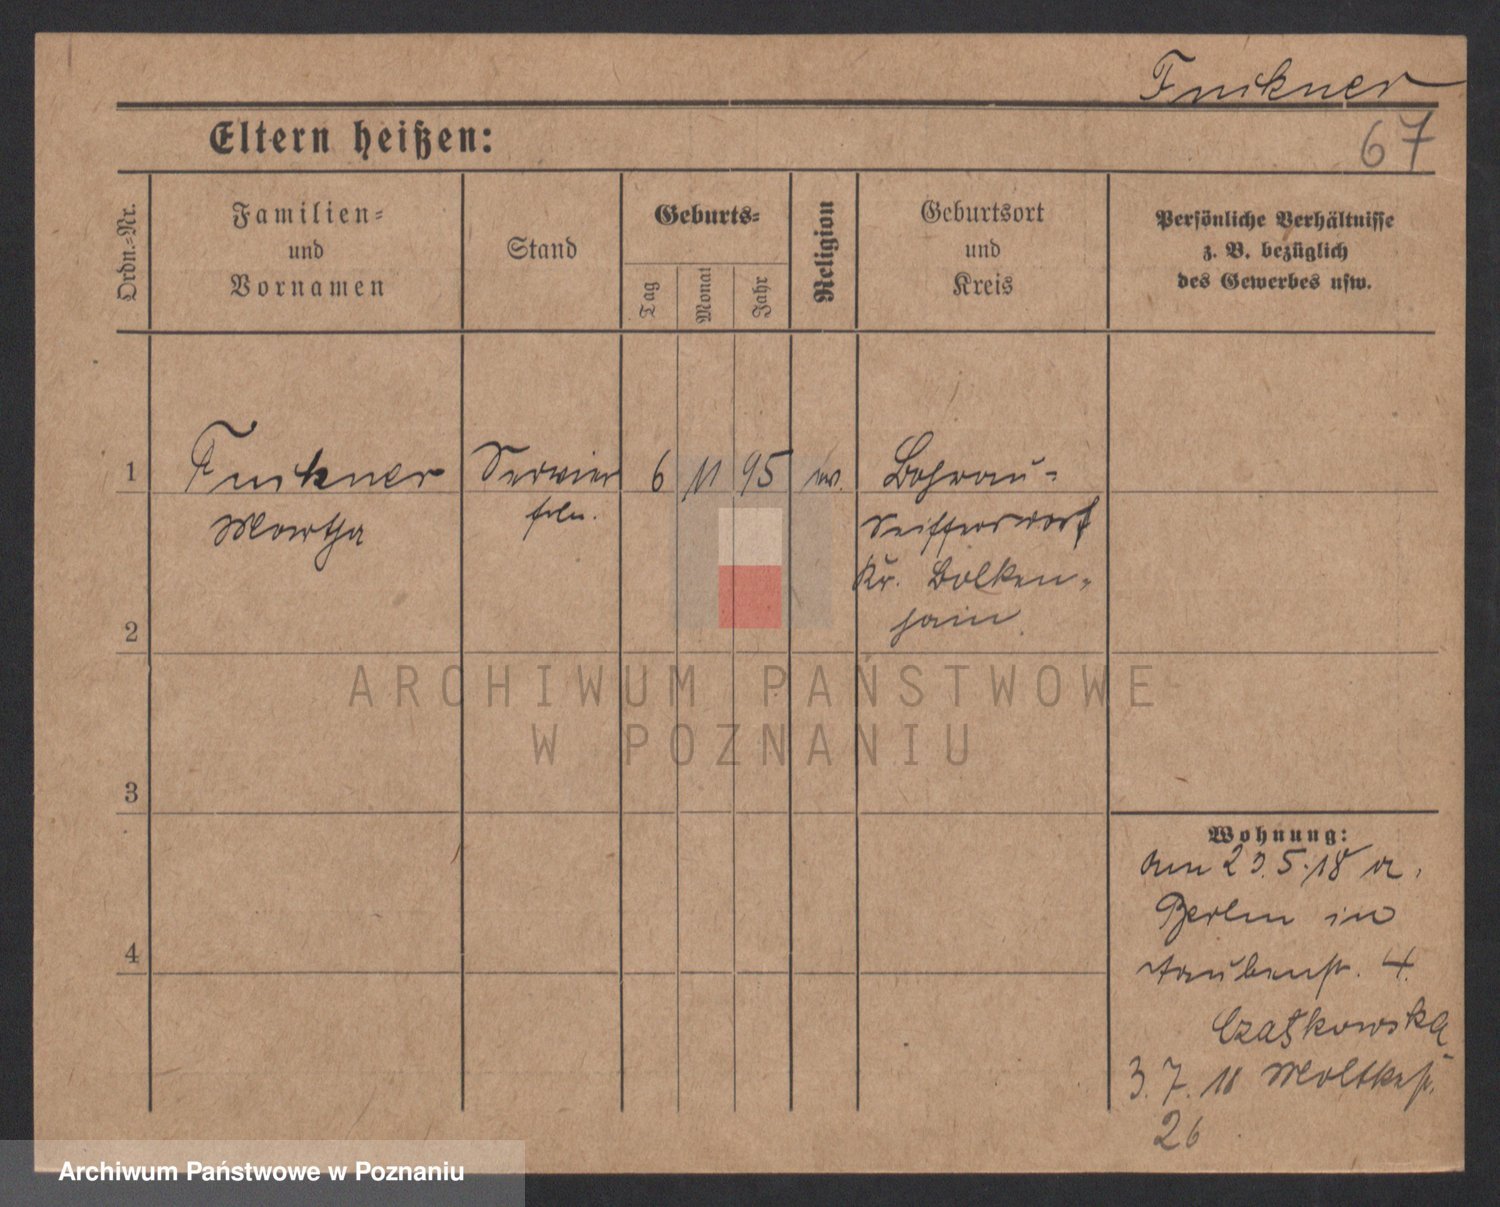 Funkner
67
Eltern heißen:
Ordn.-Nr.
Familien-
und
Vornamen
Stand
Geburts-
Tag
Monat
Jahr
Religion
Geburtsort
und
Kreis
Persönliche Verhältnisse
z. B. bezüglich
des Gewerbes usw.
1
Servier
6
11
95
ev.
Bohrau-
Martha
frln.
Seiffersdorf
Kr. Bolken-
2
hain
ARCHIWUM PAŃSTWOWE
W POZNANIU
3
Wohnung:
am 23.5.18 a.
Berlin in
4
Taubenstr. 4.
Czaskowska
3.7.18 Moltkestr.
26
Archiwum Państwowe w Poznaniu